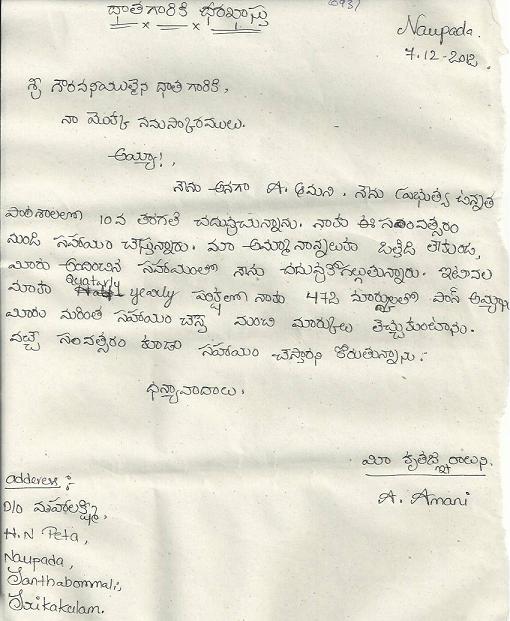 దాతగారికి ధరఖాస్తు
Naupada.
7.12-2012.
శ్రీ గౌరవనీయులైన దాత గారికి,
నా యొక్క నమస్కారములు.
అయ్యా!,
నేను అనగా A. ఆమని. నేను ప్రభుత్వ ఉన్నత
పాఠశాలలో 10వ తరగతి చదువుచున్నాను. నాకు ఈ సంవత్సరం
నుండి సహాయం చేస్తున్నారు. మా అమ్మానాన్నలకు ఒత్తిడి లేకుండ,
మీరు అందించిన సహాయంలో నేను చదువుకోగల్గుతున్నారు. ఇటీవల
మాకు Quaterly yearly పరీక్షలో నాకు 472 మార్కులతో పాస్ అయ్యాను
మీరు మరింత సహాయం చేస్తే మంచి మార్కులు తెచ్చుకుంటాను.
వచ్చే సంవత్సరం కూడా సహాయం చేస్తారని కోరుతున్నాను.
ధన్యావాదాలు.
మీ కృతజ్ఞురాలుని.
A. Amani
adderess :-
D/O మహాలక్ష్మి,
H.N Peta,
Naupada,
Santhabommali,
Srikakulam.